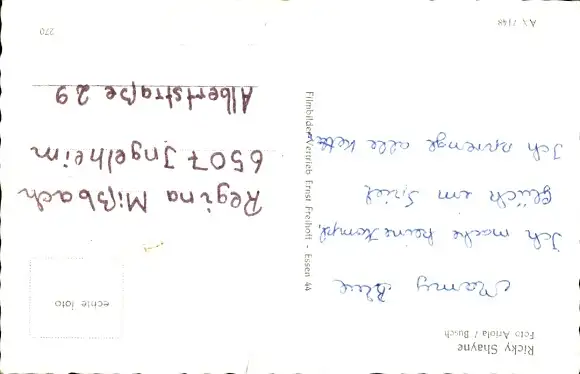 Ricky Shayne
Foto Ariola / Busch
Mamy Blue
Ich mache keine Kompl.
Glück im Spiel
Ich sprenge alle Kette
Filmbilder-Vertrieb Ernst Freihoff - Essen 44
echte foto
Regina Mißbach
6507 Ingelheim
Albertstraße 29
AX 7148
270